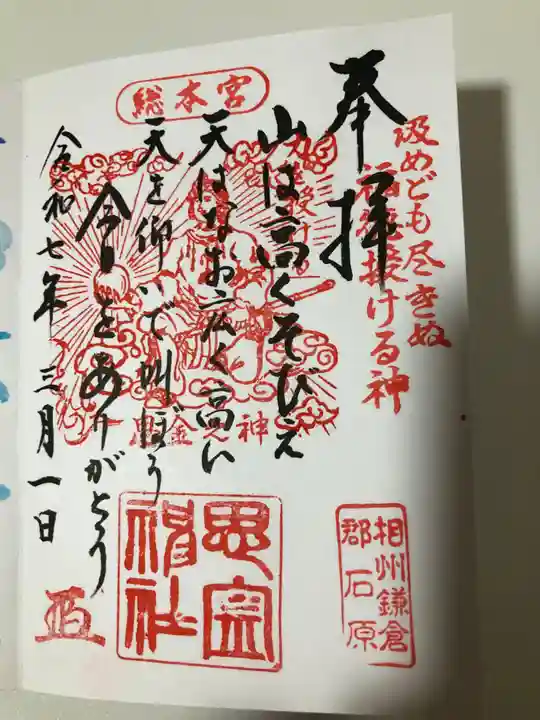 奉拝
汲めども尽きぬ
福徳授ける神
総本宮
山は高くそびえ
天はなお広く高い
天を仰いで叫ぼう
今日をありがとう
令和七年 三月一日
金神
思金神社
相州鎌倉
郡石原